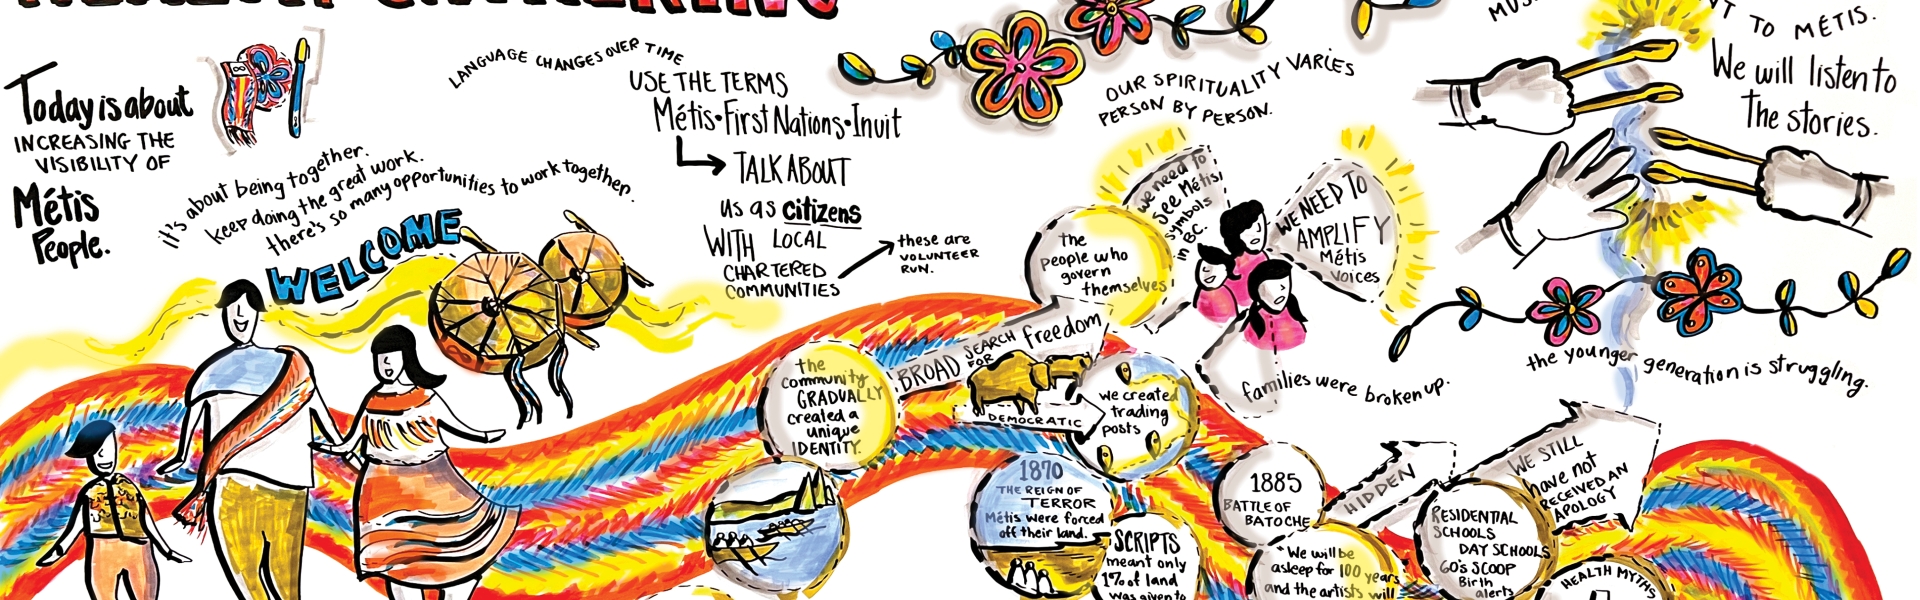 HEALTH GATHERING
Today is about
INCREASING THE
VISIBILITY OF
Métis
People.
it's about being together.
keep doing the great work.
there's so many opportunities to work together.
WELCOME
LANGUAGE CHANGES OVER TIME
USE THE TERMS
Métis • First Nations • Inuit
TALK ABOUT
us as citizens
WITH LOCAL
CHARTERED
COMMUNITIES
these are
VOLUNTEER
RUN.
OUR SPIRITUALITY VARIES
PERSON BY PERSON.
the
people who
govern
themselves
we need to
see Métis
symbols
in B.C.
WE NEED TO
AMPLIFY
Métis
voices
families were broken up.
TO MÉTIS.
We will listen to
The stories.
the younger generation is struggling.
the
community
GRADUALLY
created a
unique
IDENTITY.
BROAD SEARCH FOR freedom
DEMOCRATIC
we created
trading
posts
1870
THE REIGN OF
TERROR
Métis were forced
off their land.
SCRIPTS
meant only
1% of land
was given to
1885
BATTLE OF
BATOCHE
"We will be
asleep for 100 years
and the artists will
HIDDEN
RESIDENTIAL
SCHOOLS
DAY SCHOOLS
60's SCOOP
Birth
alerts
WE STILL
have not
RECEIVED AN
APOLOGY
HEALTH MYTHS